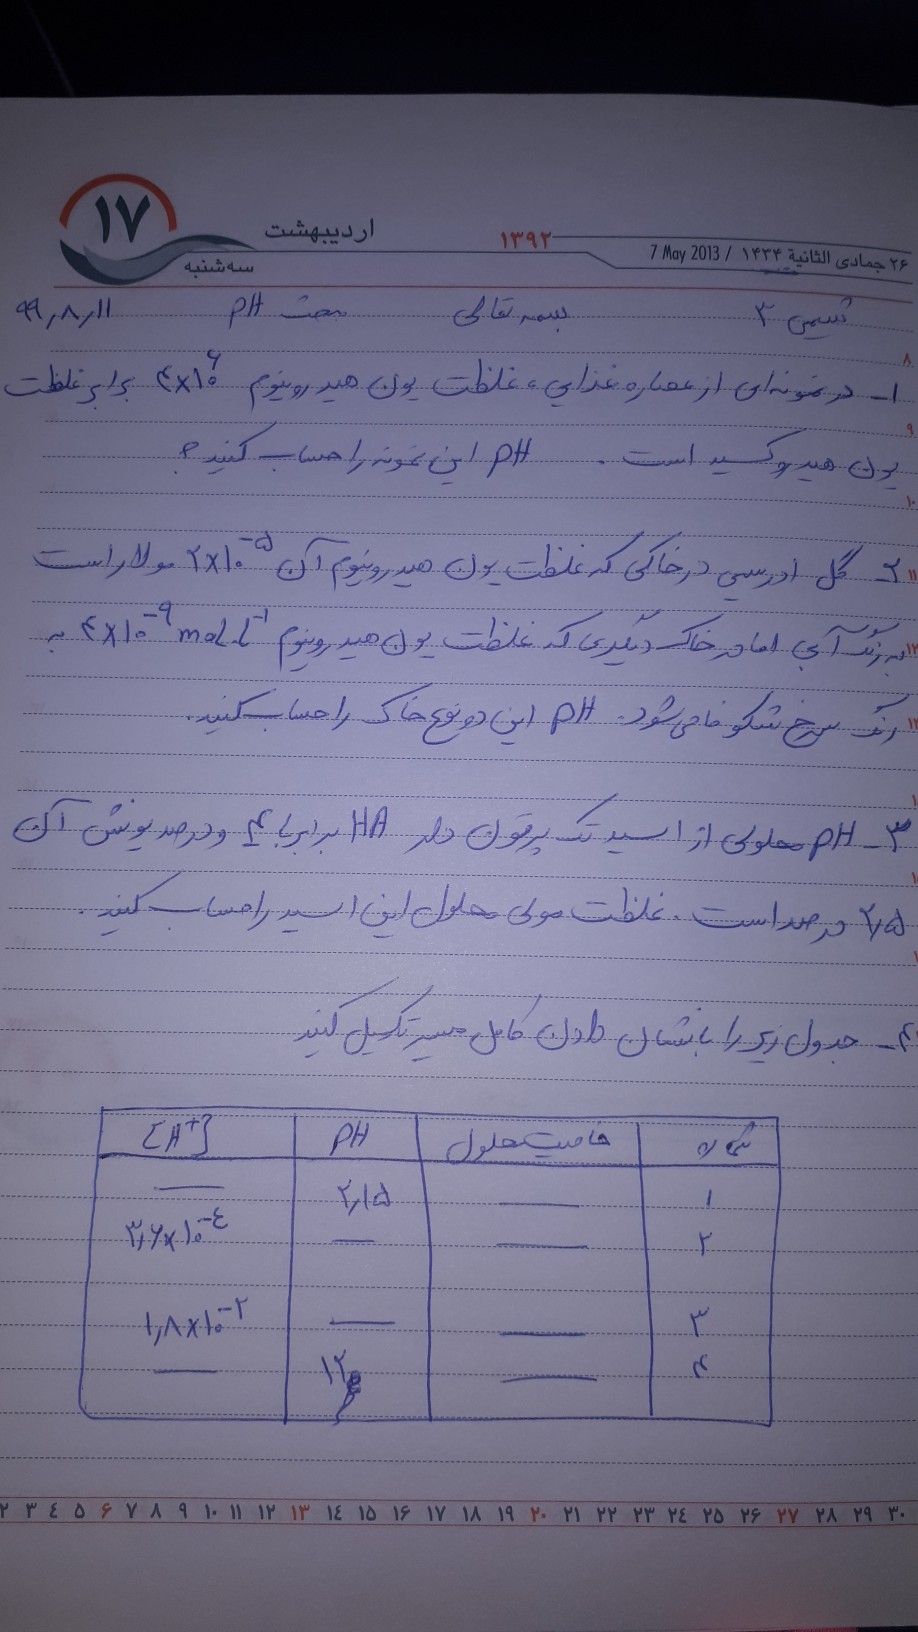 ۱۷
اردیبهشت
سه شنبه
۱۳۹۲
۲۶ جمادی الثانیة ۱۴۳۴ / 7 May 2013
شیمی ۳ بسمه تعالی مبحث PH ۹۹,۸,۱۱
۱- در نمونه‌ای از عصاره غذایی، غلظت یون هیدرونیوم ۴×۱۰⁶ برابر غلظت
یون هیدروکسید است. PH این نمونه را حساب کنید؟
۲- گل ادریسی در خاکی که غلظت یون هیدرونیوم آن ۲×۱۰⁻⁵ مولار است
به رنگ آبی اما در خاک دیگری که غلظت یون هیدرونیوم ۴×۱۰⁻⁹ mol.L⁻¹ به
رنگ سرخ شکوفا می‌شود. PH این دو نوع خاک را حساب کنید.
۳- PH محلولی از اسید تک پروتون دار HA برابر با ۴ و درصد یونش آن
۲,۵ درصد است. غلظت مولی محلول این اسید را حساب کنید.
۴- جدول زیر را با نشان دادن کامل مسیر تکمیل کنید
شماره خاصیت محلول PH [H⁺]
۱ — ۲,۱۵ —
۲ — — ۳,۶×۱۰⁻⁴
۳ — — ۱,۸×۱۰⁻²
۴ — ۱۲ —
۲ ۳ ۴ ۵ ۶ ۷ ۸ ۹ ۱۰ ۱۱ ۱۲ ۱۳ ۱۴ ۱۵ ۱۶ ۱۷ ۱۸ ۱۹ ۲۰ ۲۱ ۲۲ ۲۳ ۲۴ ۲۵ ۲۶ ۲۷ ۲۸ ۲۹ ۳۰